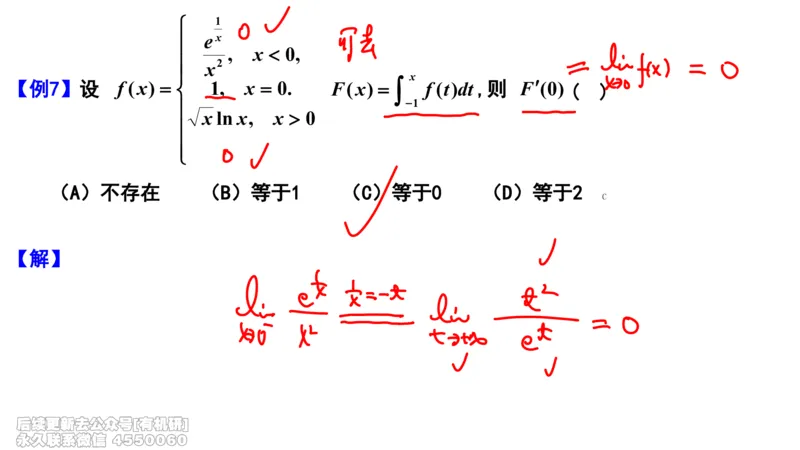 【例7】设 f(x) = { e^{1/x}/x², x < 0, 0 ✓
1, x = 0. F(x) = ∫_{-1}^{x} f(t)dt, 则 F′(0) ( )
√x ln x, x > 0
0 ✓
可去
= lim_{x→0} f(x) = 0
(A) 不存在 (B) 等于1 (C) 等于0 (D) 等于2 c
【解】
lim_{x→0⁻} e^{1/x}/x² \overset{1/x=-t}{=} lim_{t→+∞} t²/e^t = 0
后续更新去公众号[有机研]
永久联系微信 4550060